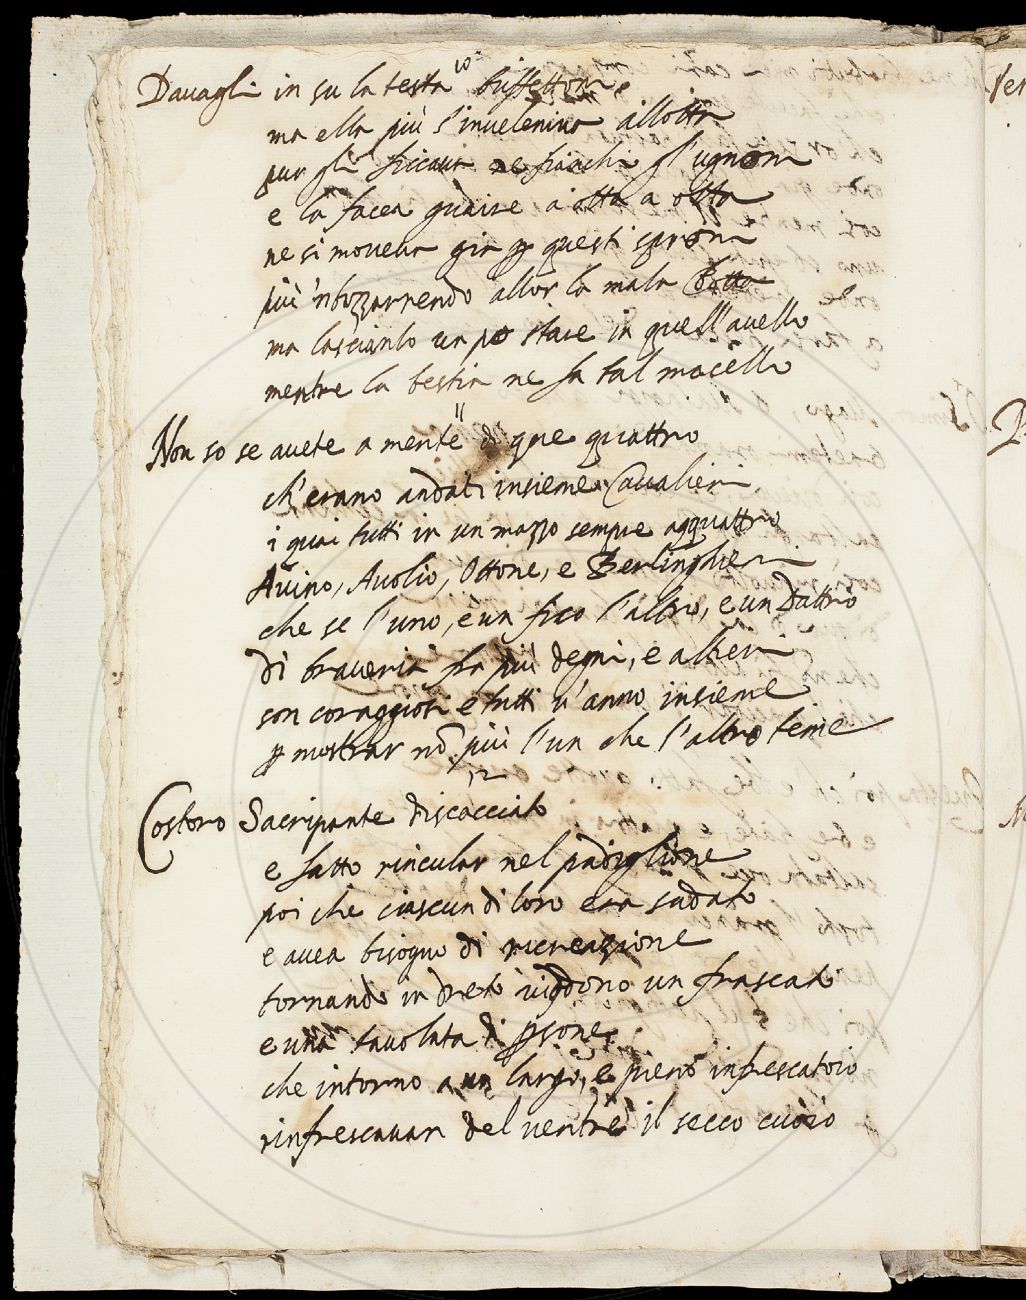 10
Davagli in su la testa buffettoni
ma ella più s'inveleniva allotta
pur gli ficcava ne fianchi gl'ugnoni
e la facea guaire a otta a otta
ne si moveva gia p questi sproni
più 'nbizzarrendo allor la mala Botta
ma lascianlo un po stare in quell'avello
mentre la bestia ne fa tal macello
11
Non so se avete a mente di que quattro
ch'erano andati insieme Cavalieri
i quai tutti in un mazzo sempre agquattro
Avino, Avolio, Ottone, e Berlinghieri
che se l'uno, è un fico l'altro, e un Dattro
di braveria fra più degni, e alteri
son coraggiosi e tutti v'anno insieme
p mostrar nõ più l'un che l'altro teme
12
Costoro Sacripante discacciato
e fatto rincular nel padiglione
poi che ciascun di loro era sudato
e avea bisogno di ricreazione
tornando in dreto viddono un frascato
e una tavolata di psone
che intorno a un largo, e pieno infrescatoio
rinfrescavan del ventre il secco cuoio